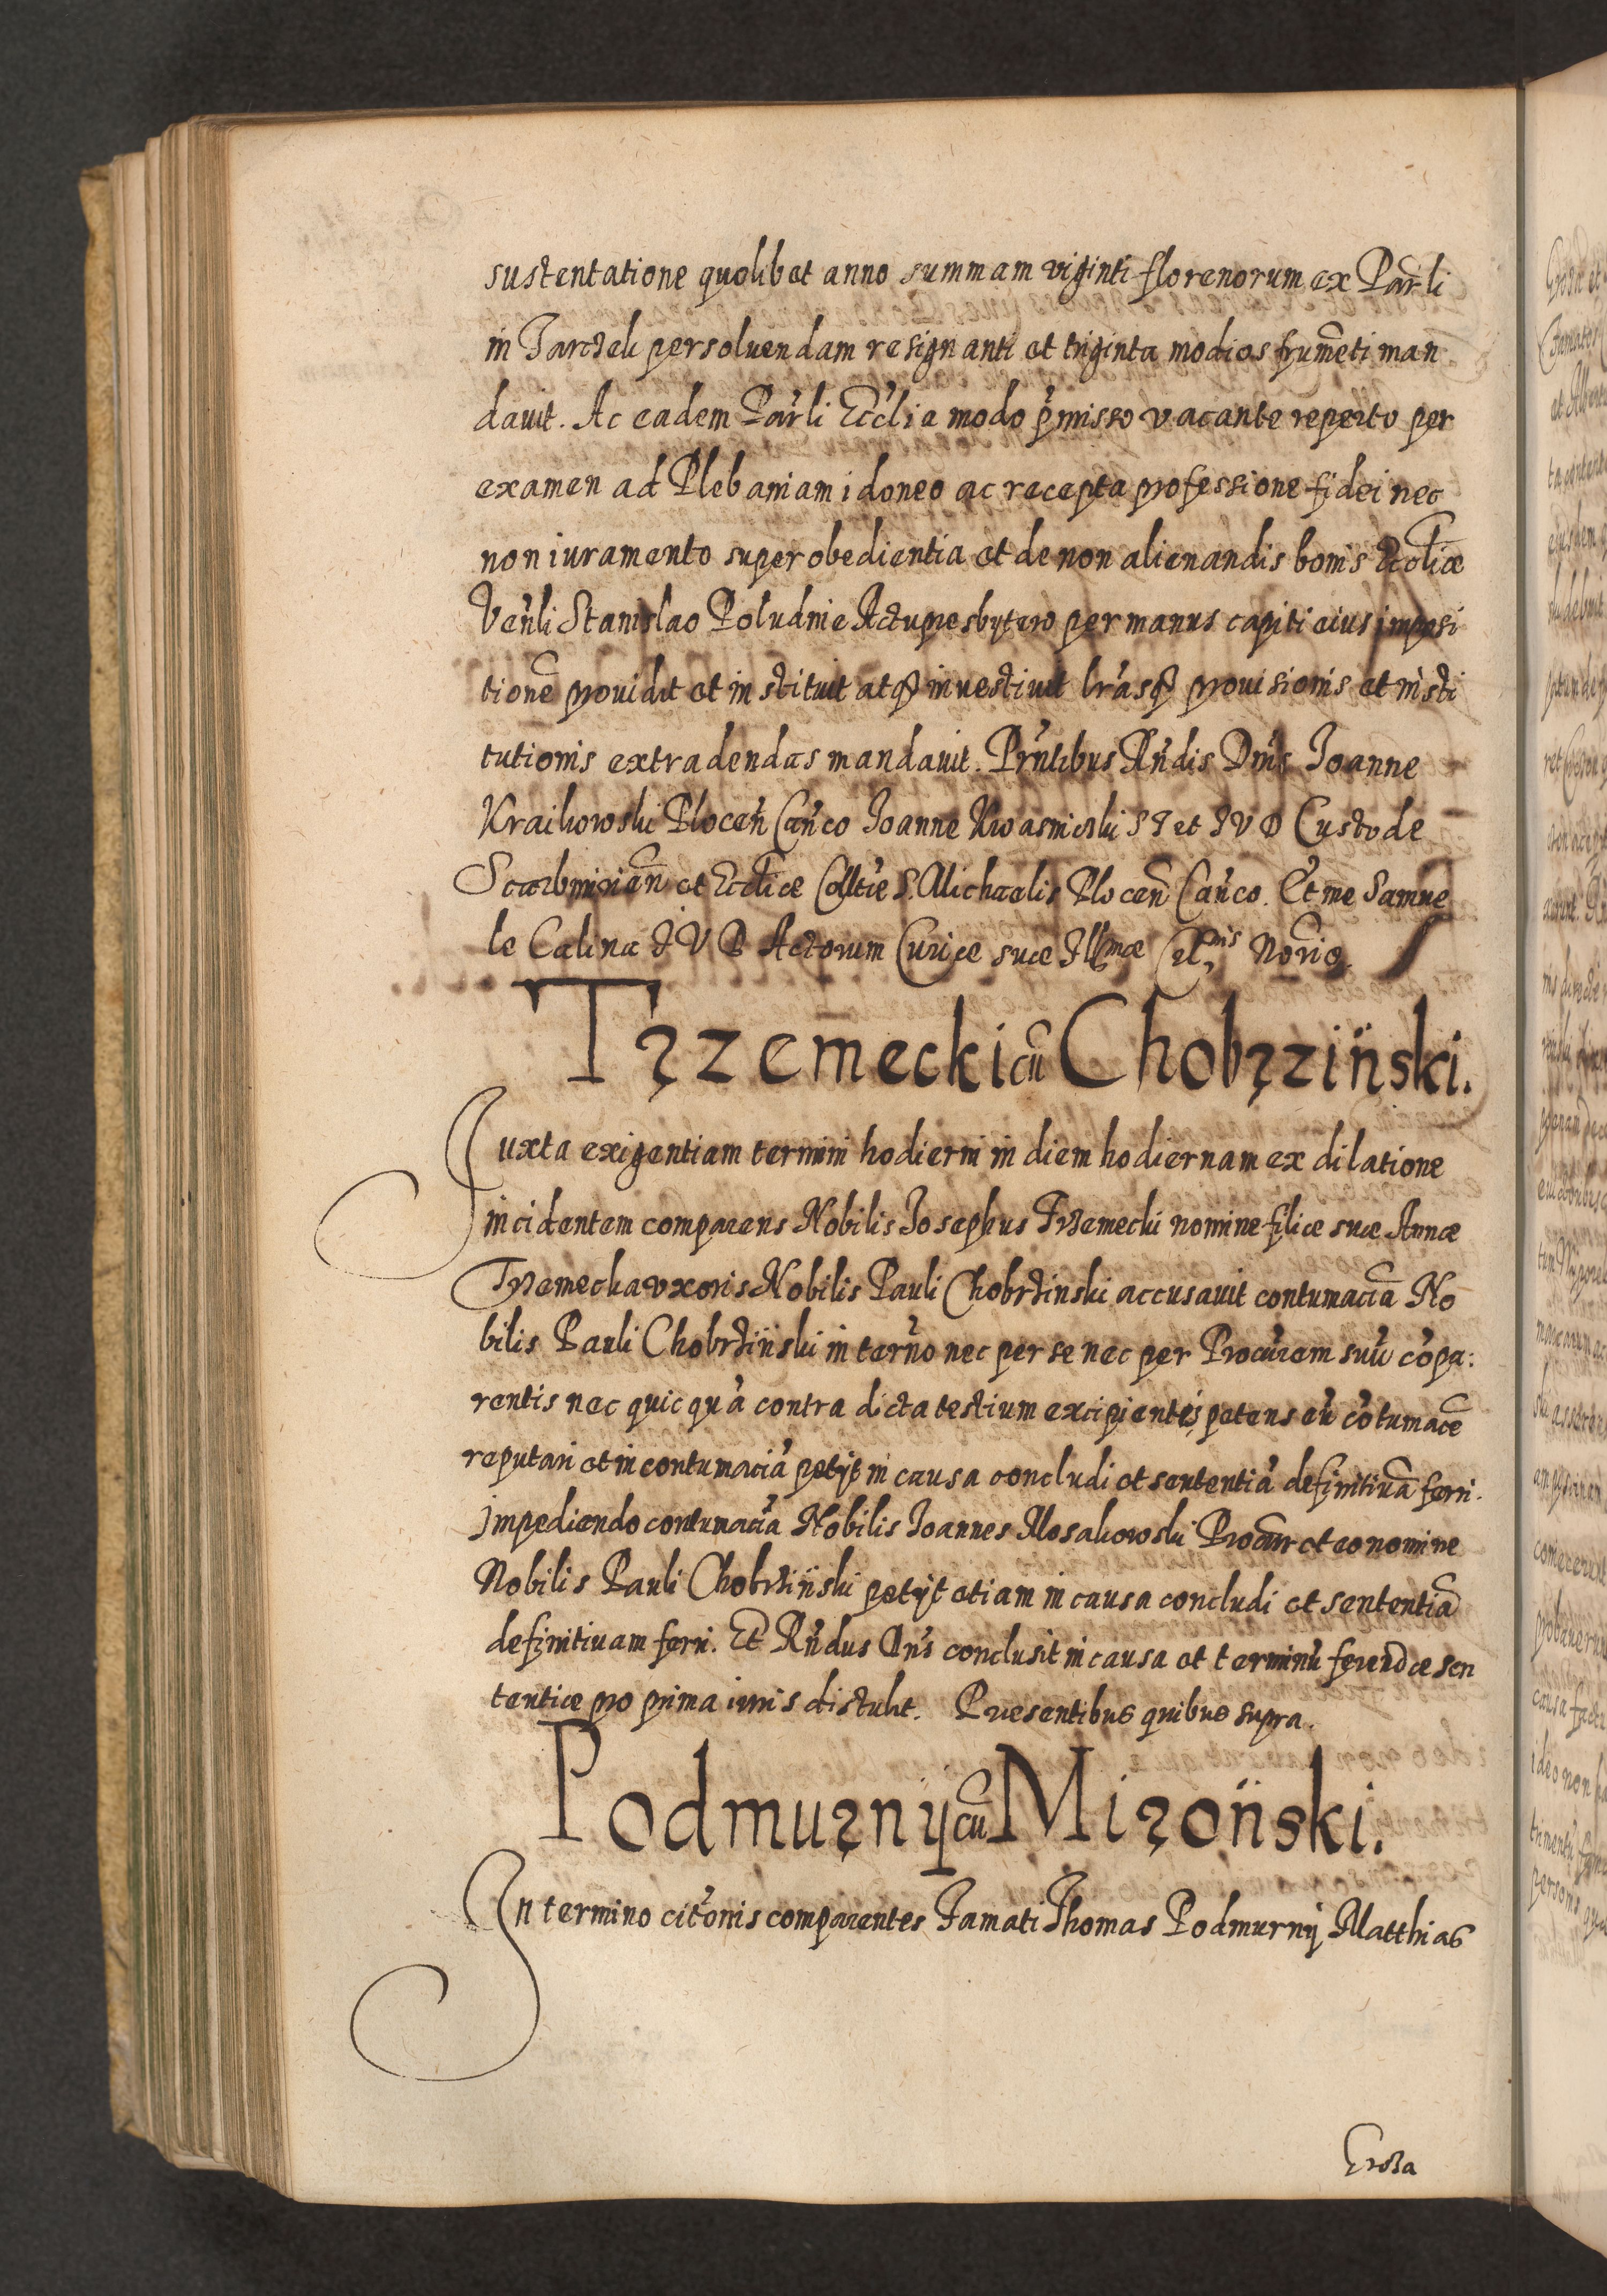 sustentatione quolibet anno summam viginti florenorum ex Par̃li
in Jarczeli persoluendam resignanti et triginta modios frumẽti man
dauit. Ac eadem Par̃li Ecc̃lia modo p̃misso vacante reperto per
examen ad Plebaniam idoneo ac recepta professione fidei nec
non iuramento super obedientia et de non alienandis bonis Eccl̃iæ
Ven̉li Stanislao Poludnie Actupresbytero per manus capiti eius imposi
tionẽ prouidit et instituit atq̃ inuestiuit lr̃asq̃ prouisionis et insti
tutionis extradendas mandauit. Prñtibus Rñdis Dñis Joanne
Kraikowski Plocen̄ Cañco Joanne Kwasnicki S T et I V D Custode
Scarbimirien̄ et Eccl̃iæ Coll̃tæ S. Michaelis Plocen̄ Cañco. Et me Samue
le Calina I V D Actorum Curiæ suæ Ill̃mæ Cel̃nis Norio.
Trzemecki cũ Chobrziński.
Juxta exigentiam termini hodierni in diem hodiernam ex dilatione
incidentem comparens Nobilis Josephus Trzemecki nomine filiæ suæ Annæ
Trzemecka vxoris Nobilis Pauli Chobrzinski accusauit contumaciã No
bilis Pauli Chobrziński in terño nec per se nec per Procũrem suũ cõpa:
rentis nec quicquã contra dicta testium excipientis petens eũ cõtumacẽ
reputari et in contumaciã petijt in causa concludi et sententiã definitiuã ferri.
Impediendo contumaciã Nobilis Joannes Mosakowski Procur̃ et eo nomine
Nobilis Pauli Chobrziński petijt etiam in causa concludi et sententiã
definitiuam ferri. Et Rñdus Dñs conclusit in causa et terminũ ferendæ sen
tentiæ pro prima iuris distulit. Præsentibus quibus supra.
Podmurnij cũ Miroński.
In termino citõnis comparentes Famati Thomas Podmurnij Matthias
Grosza